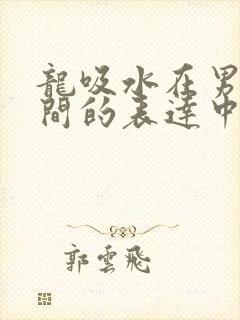 龍吸水在男
間的表達中
郭雲飛